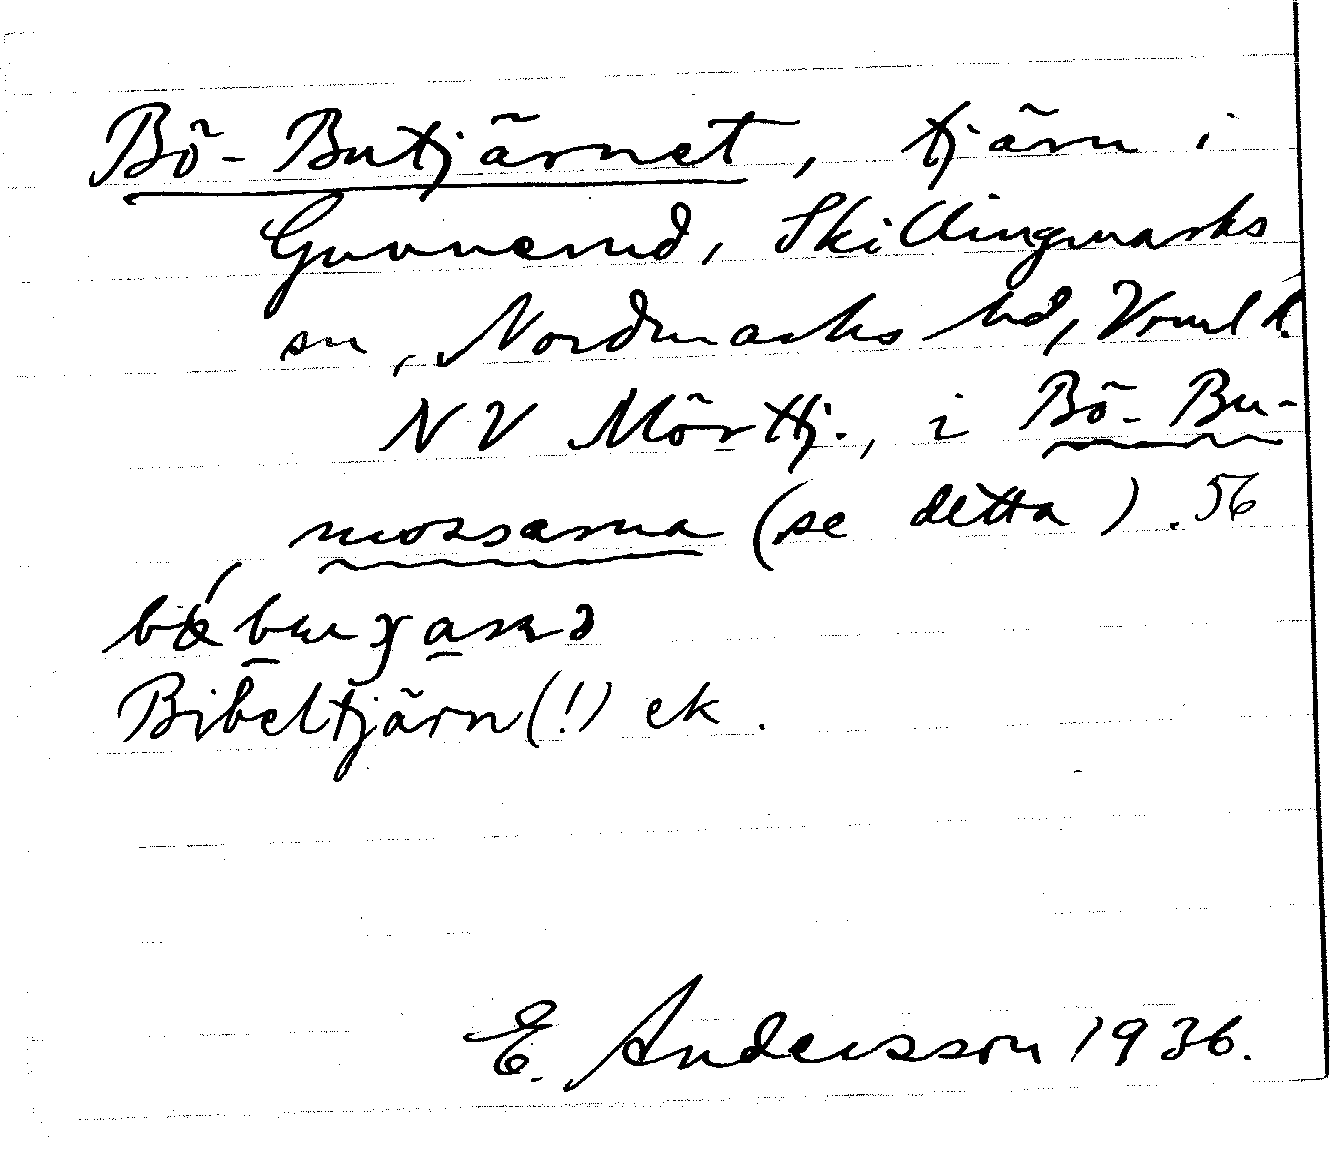 Bö-Butjärnet, tjärn i
Gunnerud, Skillingmarks
sn, Nordmarks hd, Vrml.
NV Mörttj., i Bö-Bu-
mossarna (se detta). 56
Bibeltjärn(!) ek.
E. Andersson 1936.